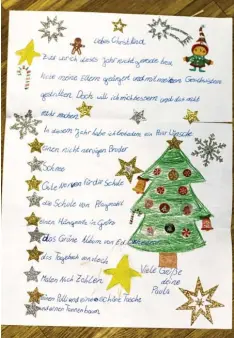 Liebes Christkind
Ich war dieses Jahr nicht immer brav
habe meine Eltern geärgert und mit meinen Geschwistern
gestritten. Doch will ich mich bessern und das nicht
mehr machen.
In diesem Jahr habe ich ein Paar Wünsche
einen nicht nervigen Bruder
Schnee
Gute Noten für die Schule
die Schule von Playmobil
einen
das Grüne Album von Ed Sheeran
das Tagebuch von
Malen Nach Zahlen
einen Pulli und eine schöne Tasche
und einen Tannenbaum
Viele Grüße
deine
Paula